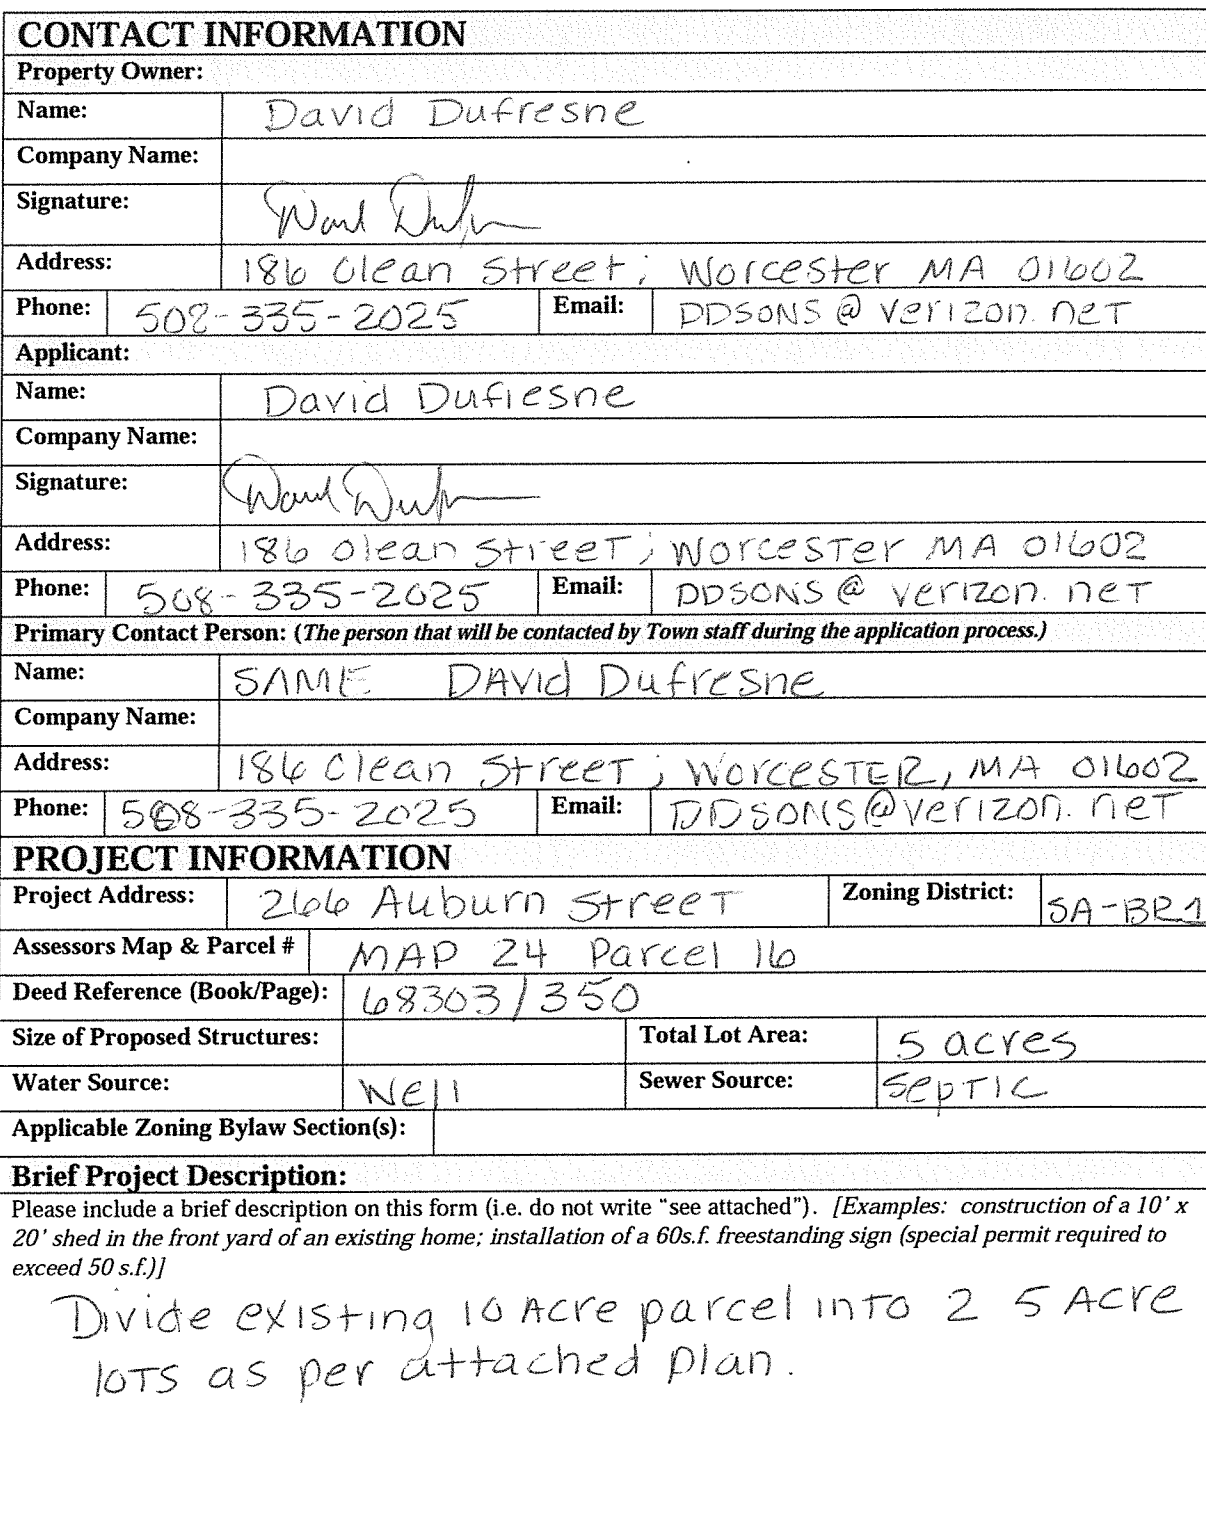 CONTACT INFORMATION
Property Owner:
Name: David Dufresne
Company Name:
Signature:
Address: 186 Olean Street, Worcester MA 01602
Phone: 508-335-2025 Email: DDSONS@verizon.net
Applicant:
Name: David Dufresne
Company Name:
Signature:
Address: 186 Olean Street, Worcester MA 01602
Phone: 508-335-2025 Email: DDSONS@verizon.net
Primary Contact Person: (The person that will be contacted by Town staff during the application process.)
Name: SAME DAVid Dufresne
Company Name:
Address: 186 Olean Street, WorcesTER, MA 01602
Phone: 508-335-2025 Email: DDSONS@verizon.net
PROJECT INFORMATION
Project Address: 266 Auburn Street Zoning District: SA-BR1
Assessors Map & Parcel # MAP 24 Parcel 16
Deed Reference (Book/Page): 68303/350
Size of Proposed Structures: Total Lot Area: 5 acres
Water Source: Well Sewer Source: Septic
Applicable Zoning Bylaw Section(s):
Brief Project Description:
Please include a brief description on this form (i.e. do not write "see attached"). [Examples: construction of a 10' x
20' shed in the front yard of an existing home; installation of a 60s.f. freestanding sign (special permit required to
exceed 50 s.f.)]
Divide existing 10 Acre parcel into 2 5 Acre
lots as per attached plan.